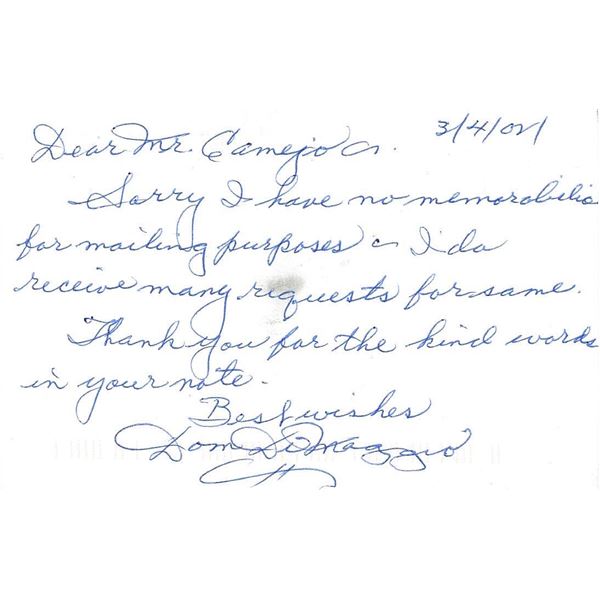 3/4/02
Dear Mr. Camejo
Sorry I have no memorabilia
for mailing purposes - I do
receive many requests for same.
Thank you for the kind words
in your note.
Best wishes
Dom DiMaggio